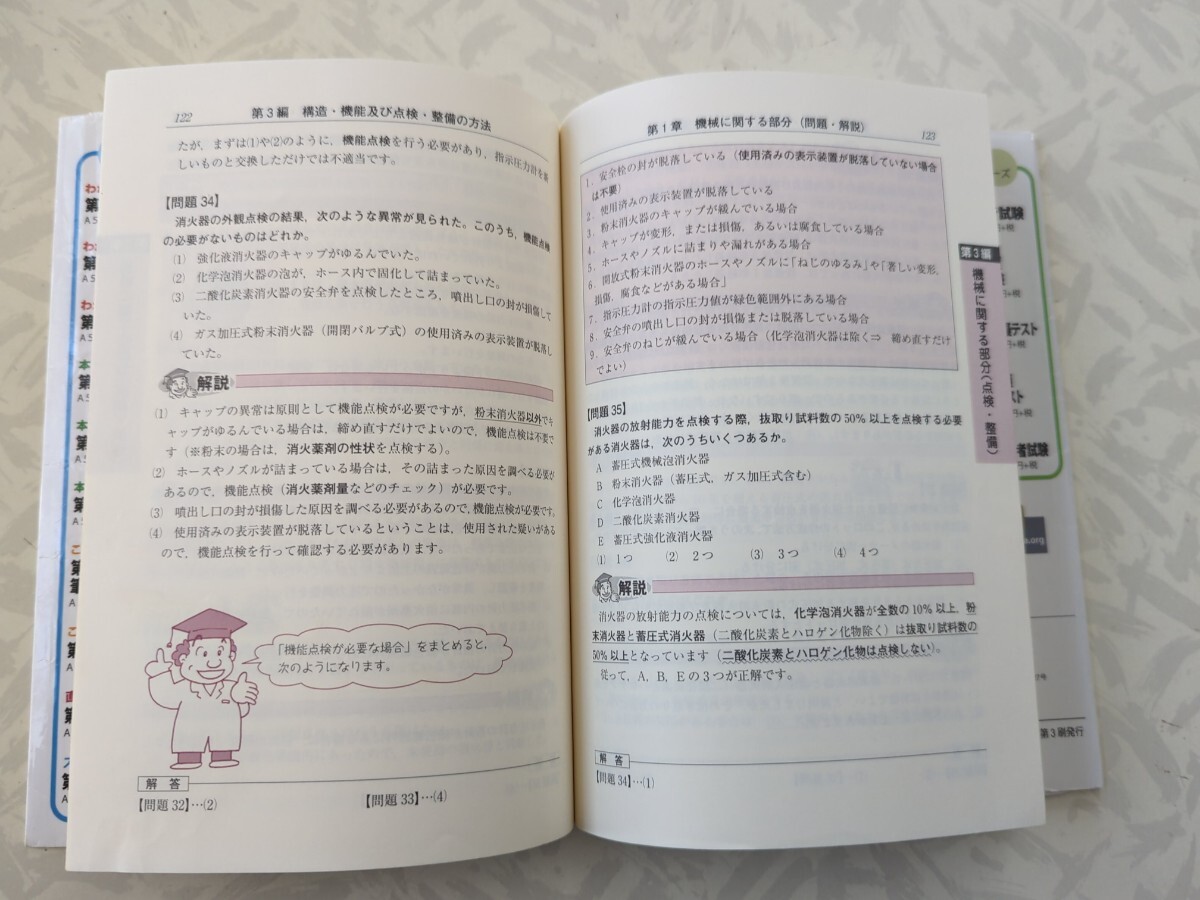 122
第3編 構造・機能及び点検・整備の方法
たが，まずは(1)や(2)のように，機能点検を行う必要があり，指示圧力計を新
しいものと交換しただけでは不適当です。
【問題34】
消火器の外観点検の結果，次のような異常が見られた。このうち，機能点検
の必要がないものはどれか。
(1) 強化液消火器のキャップがゆるんでいた。
(2) 化学泡消火器の泡が，ホース内で固化して詰まっていた。
(3) 二酸化炭素消火器の安全弁を点検したところ，噴出し口の封が損傷して
いた。
(4) ガス加圧式粉末消火器（開閉バルブ式）の使用済みの表示装置が脱落し
ていた。
解説
(1) キャップの異常は原則として機能点検が必要ですが，粉末消火器以外でキ
ャップがゆるんでいる場合は，締め直すだけでよいので，機能点検は不要で
す（※粉末の場合は，消火薬剤の性状を点検する）。
(2) ホースやノズルが詰まっている場合は，その詰まった原因を調べる必要が
あるので，機能点検（消火薬剤量などのチェック）が必要です。
(3) 噴出し口の封が損傷した原因を調べる必要があるので，機能点検が必要です。
(4) 使用済みの表示装置が脱落しているということは，使用された疑いがある
ので，機能点検を行って確認する必要があります。
「機能点検が必要な場合」をまとめると，
次のようになります。
解 答
【問題32】…(2)
【問題33】…(4)
第1章 機械に関する部分（問題・解説）
123
1．安全栓の封が脱落している（使用済みの表示装置が脱落していない場合
は不要）
2．使用済みの表示装置が脱落している
3．粉末消火器のキャップが緩んでいる場合
4．キャップが変形，または損傷，あるいは腐食している場合
5．ホースやノズルに詰まりや漏れがある場合
6．開放式粉末消火器のホースやノズルに「ねじのゆるみ」や「著しい変形，
損傷，腐食などがある場合」
7．指示圧力計の指示圧力値が緑色範囲外にある場合
8．安全弁の噴出し口の封が損傷または脱落している場合
9．安全弁のねじが緩んでいる場合（化学泡消火器は除く⇒ 締め直すだけ
でよい）
【問題35】
消火器の放射能力を点検する際，抜取り試料数の50％以上を点検する必要
がある消火器は，次のうちいくつあるか。
A 蓄圧式機械泡消火器
B 粉末消火器（蓄圧式，ガス加圧式含む）
C 化学泡消火器
D 二酸化炭素消火器
E 蓄圧式強化液消火器
(1) 1つ (2) 2つ (3) 3つ (4) 4つ
解説
消火器の放射能力の点検については，化学泡消火器が全数の10％以上，粉
末消火器と蓄圧式消火器（二酸化炭素とハロゲン化物除く）は抜取り試料数の
50％以上となっています（二酸化炭素とハロゲン化物は点検しない）。
従って，A，B，Eの3つが正解です。
解 答
【問題34】…(1)
第3編
機械に関する部分（点検・整備）
ーズ
試験
テスト
者試験
第3刷発行